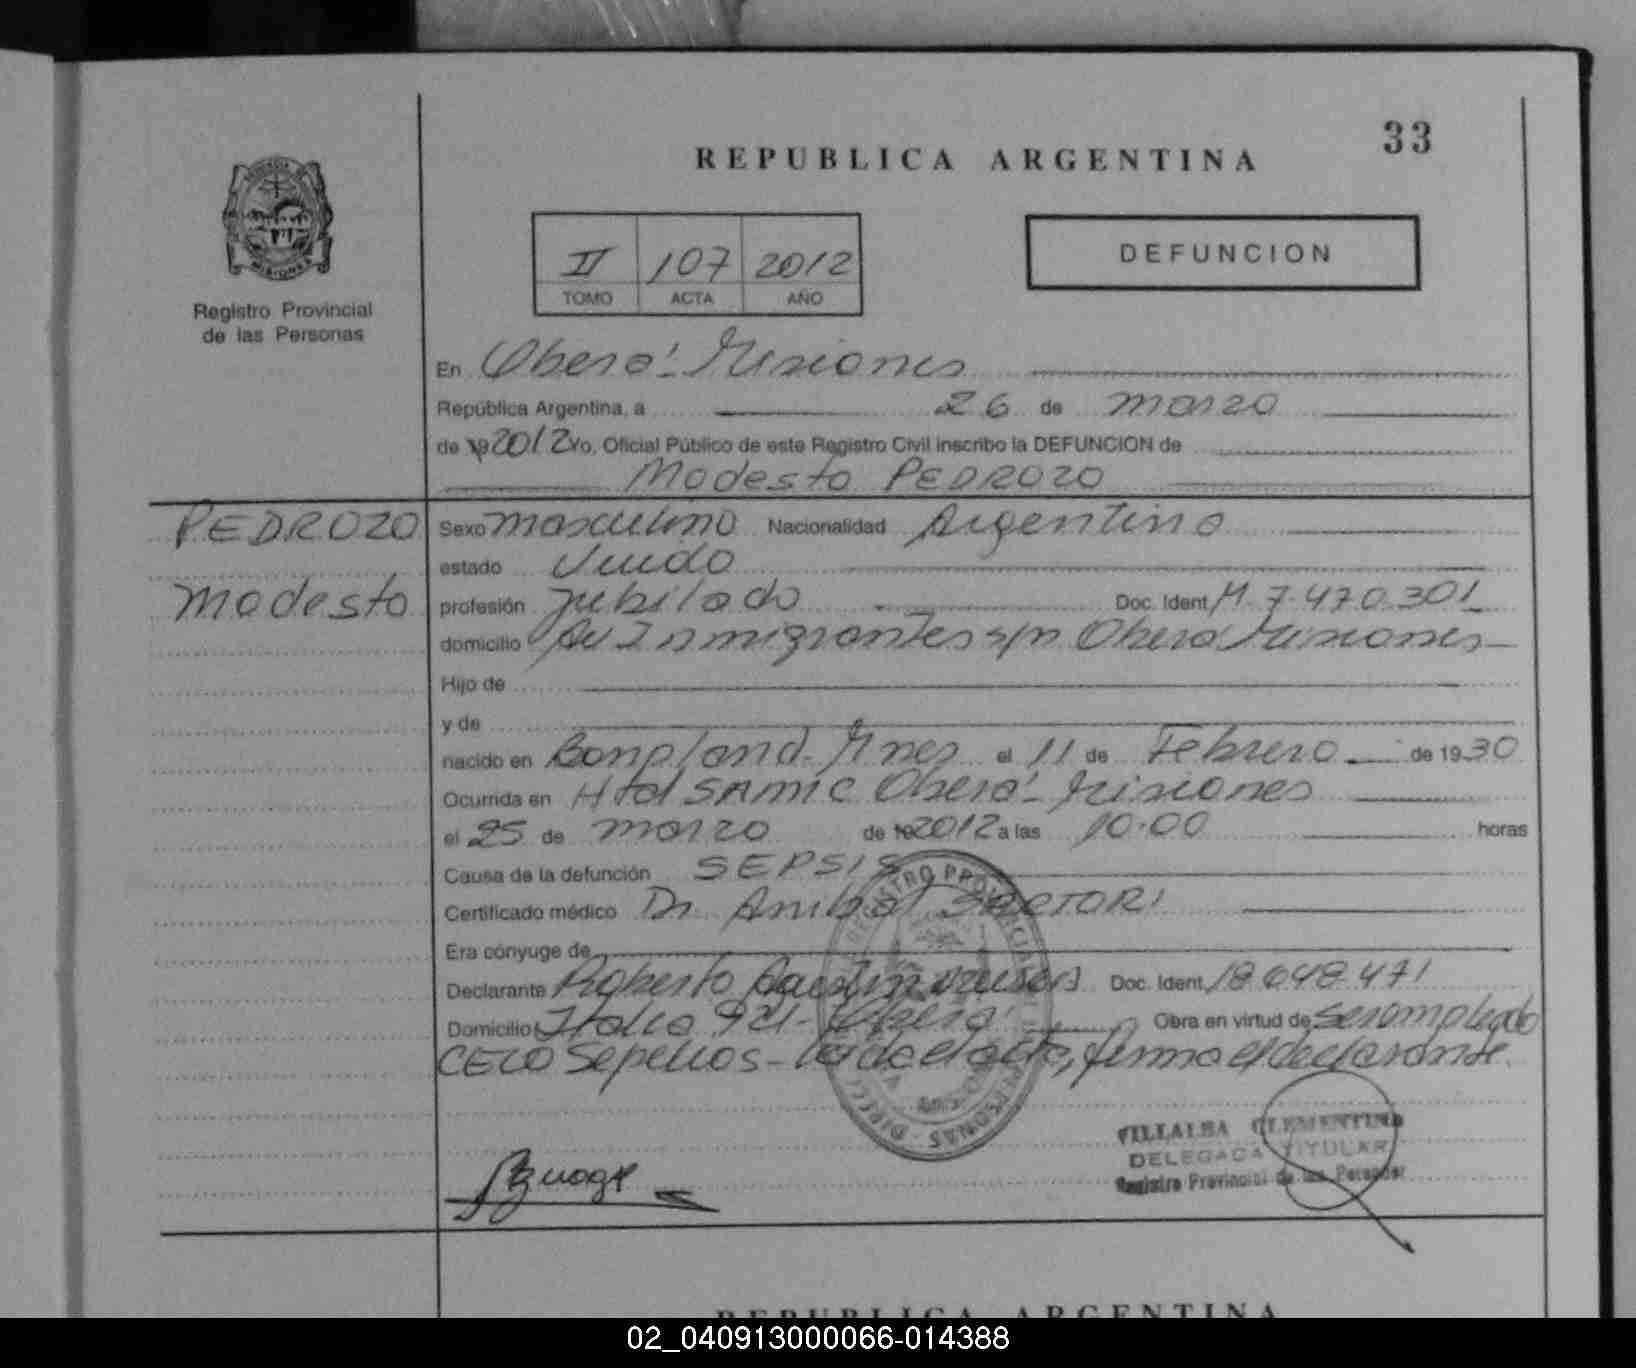 33
REPUBLICA ARGENTINA
II 107 2012
TOMO ACTA AÑO
DEFUNCION
MISIONES
Registro Provincial
de las Personas
En Oberá - Misiones
República Argentina, a 26 de marzo
de 19 2012 Yo, Oficial Público de este Registro Civil inscribo la DEFUNCION de
Modesto PEDROZO
PEDROZO
Modesto
Sexo masculino Nacionalidad Argentino
estado Viudo
profesión jubilado Doc. Ident. M. 7.470.301
domicilio Av Inmigrantes s/n Oberá Misiones
Hijo de
y de
nacido en Bonpland - Mnes el 11 de Febrero de 1930
Ocurrida en Htal SAMIC Oberá - Misiones
el 25 de marzo de 19 2012 a las 10.00 horas
Causa de la defunción SEPSIS
Certificado médico Dr. Anibal SARTORI
Era cónyuge de
Declarante Roberto Doc. Ident. 18.648.471
Domicilio Italia - Oberá Obra en virtud de ser empleado
CELO Sepelios - Leida el acta, firma el declarante.
VILLALBA CLEMENTINA
DELEGADA TITULAR
Registro Provincial de las Personas
REPUBLICA ARGENTINA
02_040913000066-014388